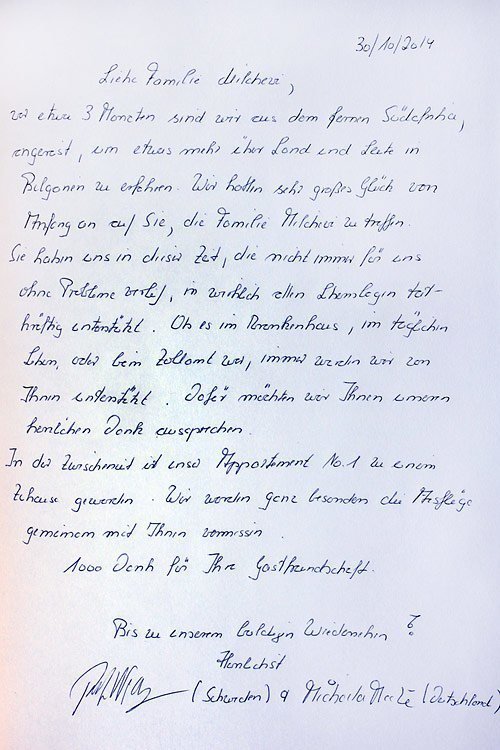 30/10/2014
Liebe Familie Milchevi,
vor etwa 3 Monaten sind wir aus dem fernen Südafrika,
angereist, um etwas mehr über Land und Leute in
Bulgarien zu erfahren. Wir hatten sehr großes Glück von
Anfang an auf Sie, die Familie Milchevi zu treffen.
Sie haben uns in dieser Zeit, die nicht immer für uns
ohne Probleme verlief, in wirklich allen Lebenslagen tat-
kräftig unterstützt. Ob es im Krankenhaus, im täglichen
Leben, oder beim Zollamt war, immer wurden wir von
Ihnen unterstützt. Dafür möchten wir Ihnen unseren
herzlichen Dank aussprechen.
In der Zwischenzeit ist unser Appartement No. 1 zu einem
Zuhause geworden. Wir werden ganz besonders die Ausflüge
gemeinsam mit Ihnen vermissen.
1000 Dank für Ihre Gastfreundschaft.
Bis zu unserem baldigen Wiedersehen
Herzlichst
(Schweden) & Michaela (Deutschland)